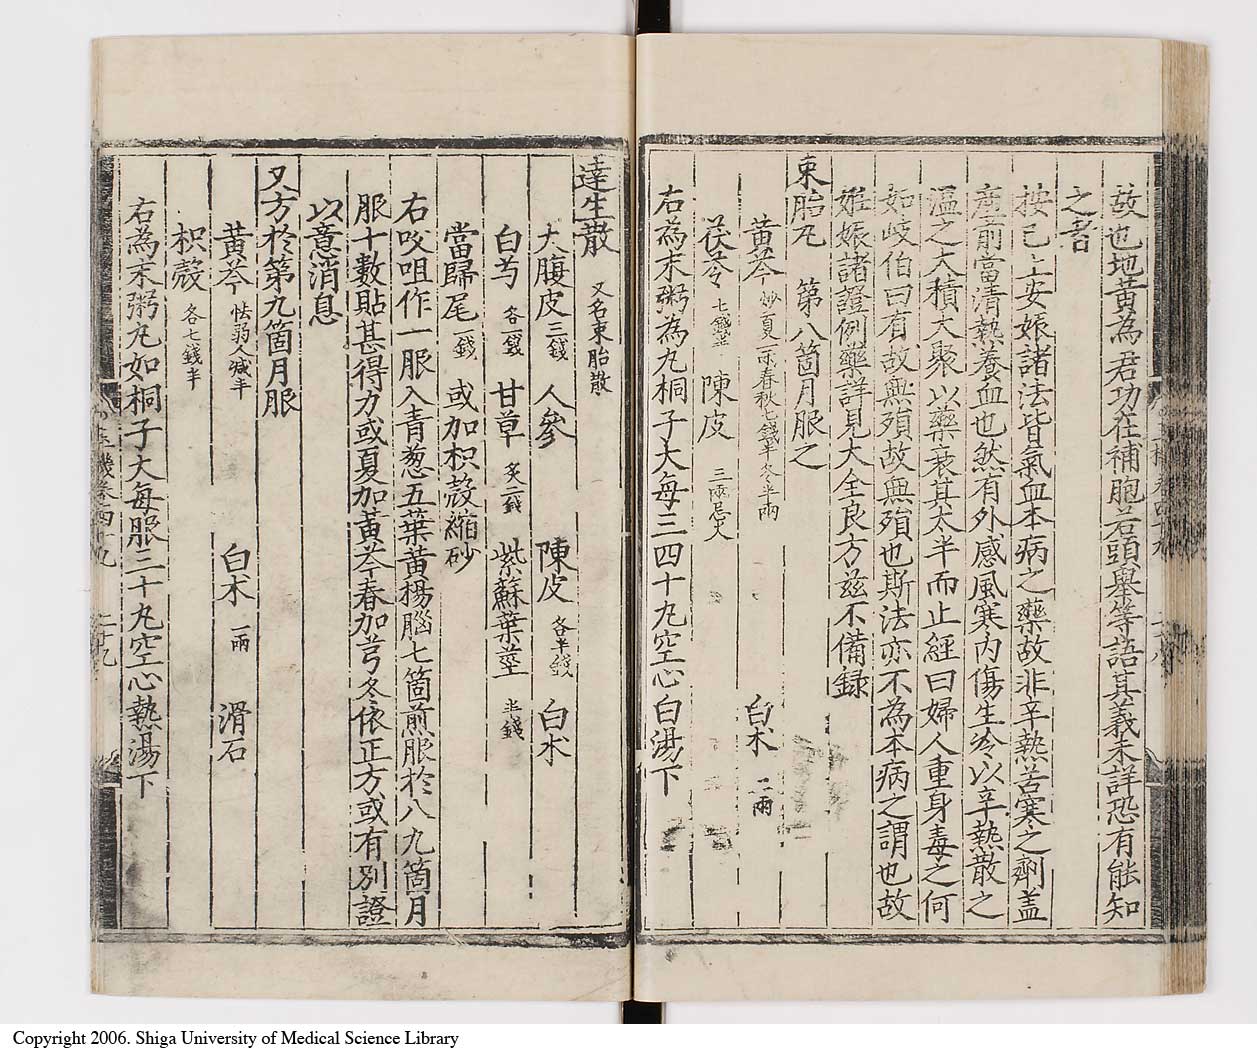 故也地黃為君功在補胞若頭舉等語其義未詳恐有能知
之者
按已上安娠諸法皆氣血本病之藥故非辛熱苦寒之劑盖
產前當清熱養血也然有外感風寒內傷生冷以辛熱散之
溫之大積大聚以藥衰其太半而止經曰婦人重身毒之何
如岐伯曰有故無殞故無殞也斯法亦不為本病之謂也故
姙娠諸證例藥詳見大全良方茲不備録
束胎丸 第八箇月服之
黃芩 炒夏一兩春秋七錢半冬半兩 白朮 二兩
茯苓 七錢半 陳皮 三兩忌火
右為末粥為丸桐子大每三四十丸空心白湯下
達生散 又名束胎散
大腹皮 三錢 人參 陳皮 各半錢 白朮
白芍 各一錢 甘草 炙二錢 紫蘇葉莖 半錢
當歸尾 一錢 或加枳殼縮砂
右㕮咀作一服入青葱五葉黃楊腦七箇煎服於八九箇月
服十數貼甚得力或夏加黃芩春加芎冬依正方或有別證
以意消息
又方於第九箇月服
黃芩 怯弱人减半 白朮 一兩 滑石
枳殼 各七錢半
右為末粥丸如桐子大每服三十丸空心熱湯下
二十九
Copyright 2006. Shiga University of Medical Science Library